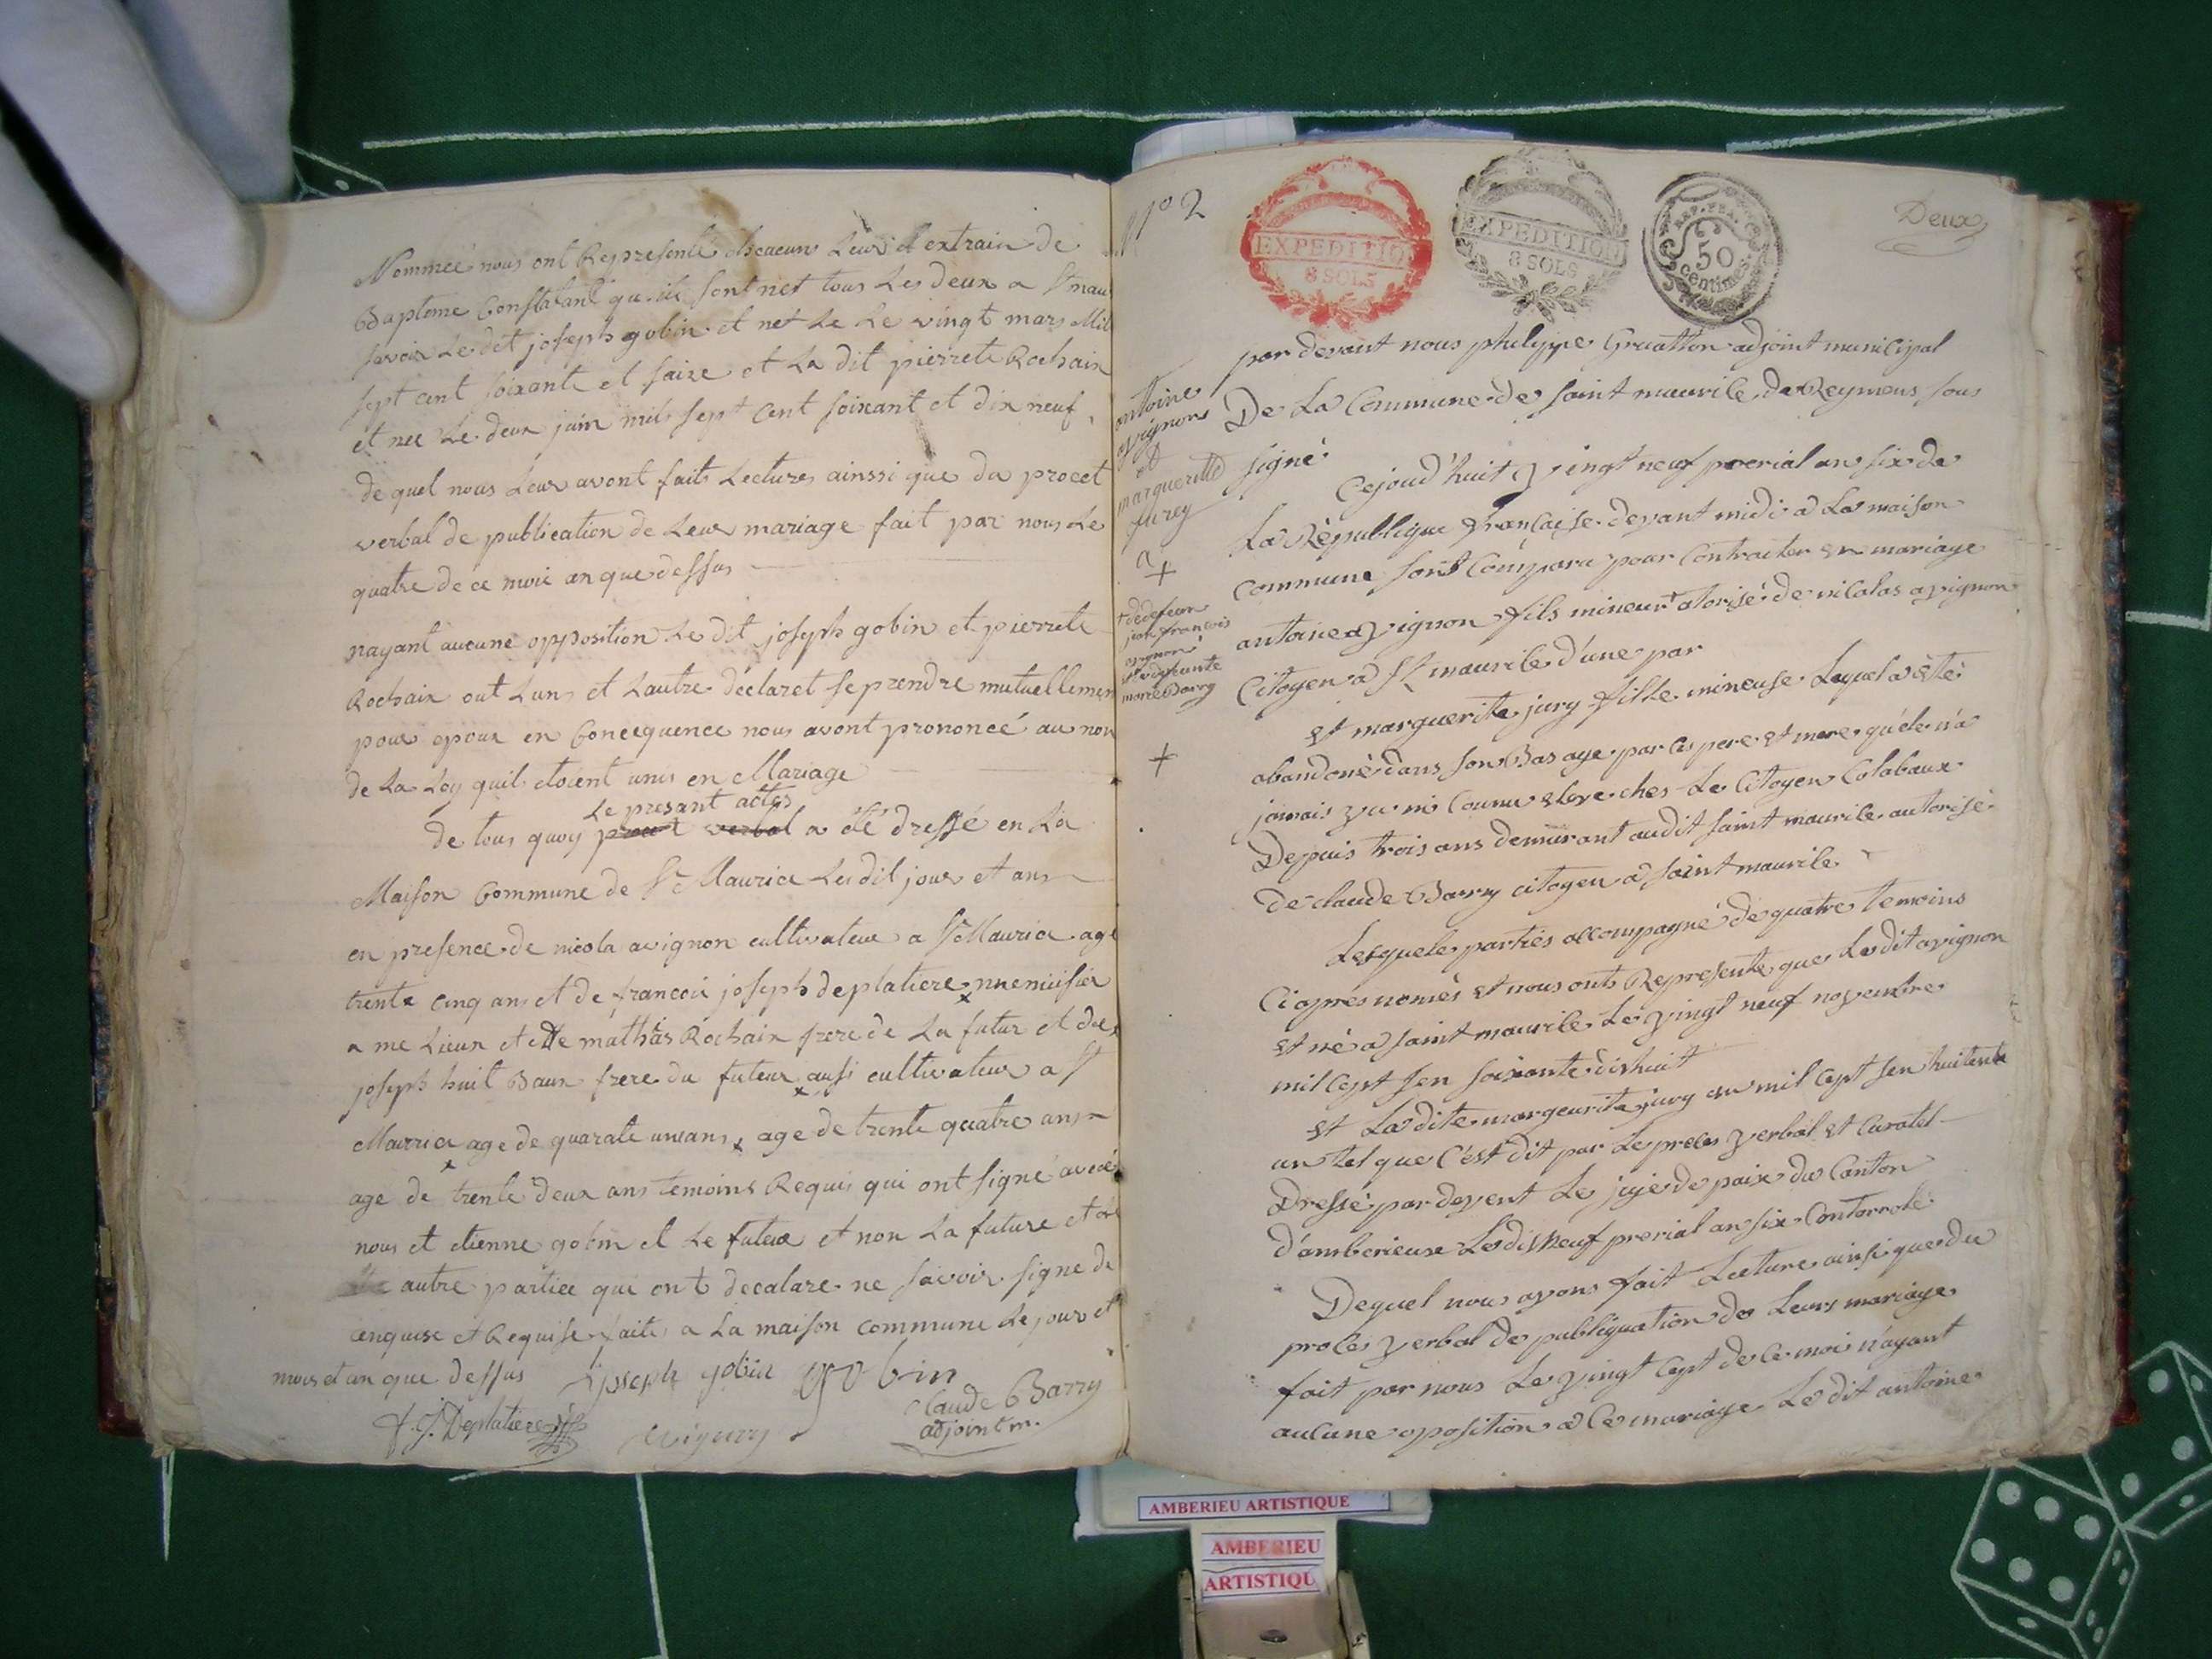 Nommeé nous ont Representé chacun Leur d extrain de
Baptême Constatant qu'ils sont net tous Les deux a St mau
savoir Le dit joseph gobin et net Le Le vingt mars Mil
sept cent soixante et saize et La dit pierrete Rochaix
et nee Le deux juin mils sept Cent soixant et dix neuf,
de quel nous Leur avont fait Lectures ainssi que du procet
verbal de publication de Leur mariage fait par nous Le
quatre de ce moic an que dessus
nayant aucune opposition Le dit joseph gobin et pierrete
Rochaix ont Luns et Lautre déclaret se prendre mutuellemen
pour epoux en Concequence nous avont prononcé au nom
de La Loy quil etoient unis en Mariage
Le presant actes
de tous quoy procet verbal a été dressé en La
Maison Commune de St Maurice Les dit jour et ans
en presence de nicola avignon cultivateur a St Maurice age
trente cinq ans et de francoi joseph deplatiere
a me Lieux et de mathias Rochaix frere de La futur et de
joseph huit Baux frere du futeur ausi cultivateur a St
Maurice age de quarate un ans age de trente quatre ans
age de trente deux ans temoins Requis qui ont signé avec
nous et etienne gobin et Le futeur et non La future et
autre partiee qui ont decalare ne savoir signe de
enquise et Requise faite a La maison commune Le jour et
mois et an que dessus joseph gobin gobin
Claude Barry
adjoint m.
f. j. Deplatiere
N° 2
EXPEDITION
8 SOLS
EXPEDITION
8 SOLS
REP. FRA.
50
centimes
Deux
antoine
avignons
et
margueritte
jurey
+
+ de defeun
jean francois
avignon
et de defeunte
marie Barry
+
par devant nous philippe Gruatton adjoint municipal
De La Commune de saint maurile de Reymens sous
signé
Cejoud'huit vingt neuf prerial an six de
La République française devant midi a La maison
commune sont Compara pour Contracter en mariage
antoine avignon fils mineur + atorisé de nicolas avignon
Citoyen a St maurile d'une par
et marguerite jury fille mineuse Laquel a ètte
abandoné dans son Bas age par ces pere et mere qu'ele n'a
jamais vu ni Counu eleve ches Le Citoyen Colabaux
Depuis trois ans demurant audit saint maurile autorisé
De claude Barry citoyen a saint maurile
Lesquele parties accompagné de quatre temoins
Ci aprés només et nous onts Representé que Le dit avignon
et né a saint maurile Le vingt neuf novembre
mil cept sen soixante dixhuit
et La dite margeurite jury en mil cept sen huitente
un tel que c'est dit par Le proces verbal et Curatel
Dressé par devent Le juje de paix du Canton
d'amberieux Le disneuf prerial an six Contorrolé
Dequel nous avons fait Lecture ainsi que du
proces verbal de publiquation de Leurs mariage
fait par nous Le vingt cept de ce moi n'ayant
aucune oposition a Ce mariage Le dit antoine
AMBERIEU ARTISTIQUE
AMBERIEU
ARTISTIQU